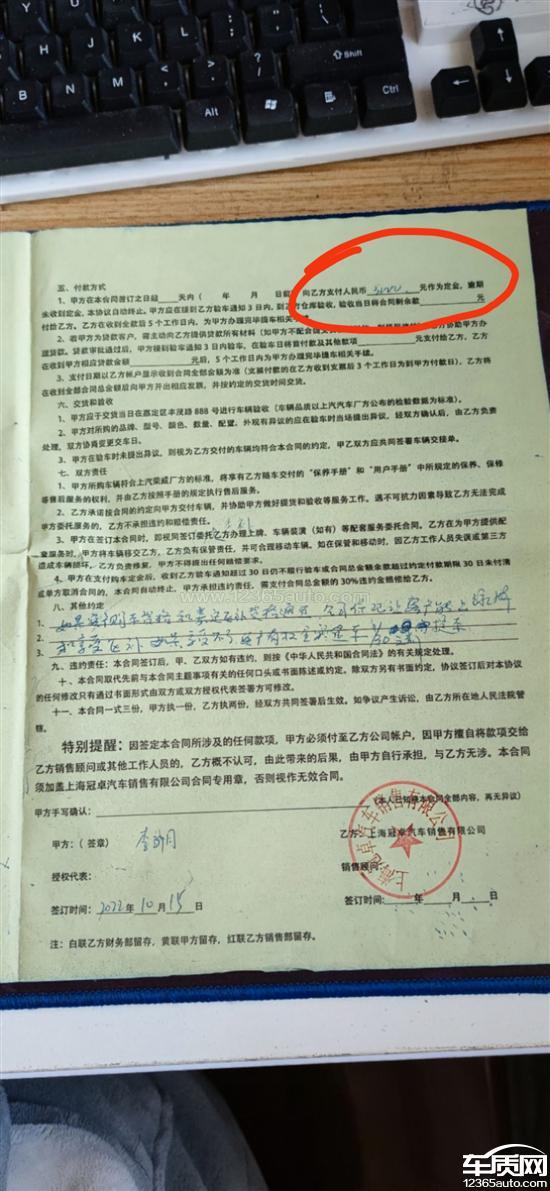 Alt
Shift
五、付款方式
1、甲方在本合同签订之日起___天内（ 年 月 日前）向乙方支付人民币 元作为定金，逾期
未收到定金，本协议自动终止。甲方应在接到乙方验车通知3日内，到乙方仓库验收，验收当日将合同剩余款 元
付给乙方。乙方在收到全款后5个工作日内，为甲方办理完毕提车相关手续。
2、若甲方为贷款客户，需主动向乙方提供贷款所有材料
理贷款。贷款审批通过后，甲方接到验车通知3日内验车，在验车日将首付款及其他款项 元支付给乙方，乙方
在收到甲方相应贷款金额 元后，5个工作日内为甲方办理完毕提车相关手续。
3、支付日期以乙方帐户显示收到合同全部金额为准（支票付款的在乙方收到支票后3个工作日为到甲方付款日），乙方将
在收到全部合同总金额后向甲方开出相应发票，并按约定的交货时间交货。
六、交货和验收
1、甲方应于交货当日在嘉定区丰茂路888号进行车辆验收（车辆品质以上汽汽车厂方公布的检验数据为标准）。
2、甲方对所购的品牌、型号、颜色、数量、配置、外观有异议的应在验车时当场提出异议，经双方确认后，由乙方负责
处理，双方协商变更交车日。
3、甲方在验车时未提出异议，则视为乙方交付的车辆均符合本合同的约定，甲乙双方应共同签署车辆交接单。
七、双方责任
1、甲方所购车辆符合上汽荣威厂方的标准，将享有乙方随车交付的“保养手册”和“用户手册”中所规定的保养、保修
等售后服务的权利，并由乙方按照手册的规定执行售后服务。
2、乙方承诺按合同的约定向甲方交付车辆，并协助甲方做好提货和验收等服务工作。遇不可抗力因素导致乙方无法完成
甲方委托服务的，乙方不承担违约和赔偿责任。
3、甲方在签订本合同时，即视同签订委托乙方办理上牌、车辆装潢（如有）等配套服务委托合同。乙方在为甲方提供配
套服务时，甲方将车辆移交乙方，乙方负有保管责任，并可合理移动车辆。如在保管和移动时，因乙方工作人员失误或第三方
造成车辆损坏，乙方负责修复，甲方不得提出任何赔偿要求。
4、甲方在支付购车定金后，收到乙方验车通知超过30日仍不履行验车或合同总金额余款超过约定付款期限30日未付清
或单方取消合同的，本合同自动终止，甲方承担违约责任，需支付合同总金额的30%违约金赔偿给乙方。
八、其他约定
1、
2、
3、
九、违约责任：本合同签订后，甲、乙双方如有违约，则按《中华人民共和国合同法》的有关规定处理。
十、本合同取代先前与本合同主题事项有关的任何口头或书面陈述或约定。除双方另有书面约定，协议签订后对本协议
的任何修改只有通过书面形式由双方或双方授权代表签署方可修改。
十一、本合同一式三份，甲方执一份，乙方执两份，经双方共同签署后生效。如争议产生诉讼，由乙方所在地人民法院管
辖。
特别提醒：因签定本合同所涉及的任何款项，甲方必须付至乙方公司帐户，因甲方擅自将款项交给
乙方销售顾问或其他工作人员的，乙方概不认可，由此带来的后果，由甲方自行承担，与乙方无涉。本合同
须加盖上海冠卓汽车销售有限公司合同专用章，否则视作无效合同。
甲方手写确认： （本人已知晓本合同全部内容，再无异议）
甲方：（签章） 乙方：上海冠卓汽车销售有限公司
授权代表： 销售顾问：
签订时间：2022年10月15日 签订时间： 年 月 日
注：白联乙方财务部留存，黄联甲方留存，红联乙方销售部留存。
www.12365auto.com
车质网
12365auto.com